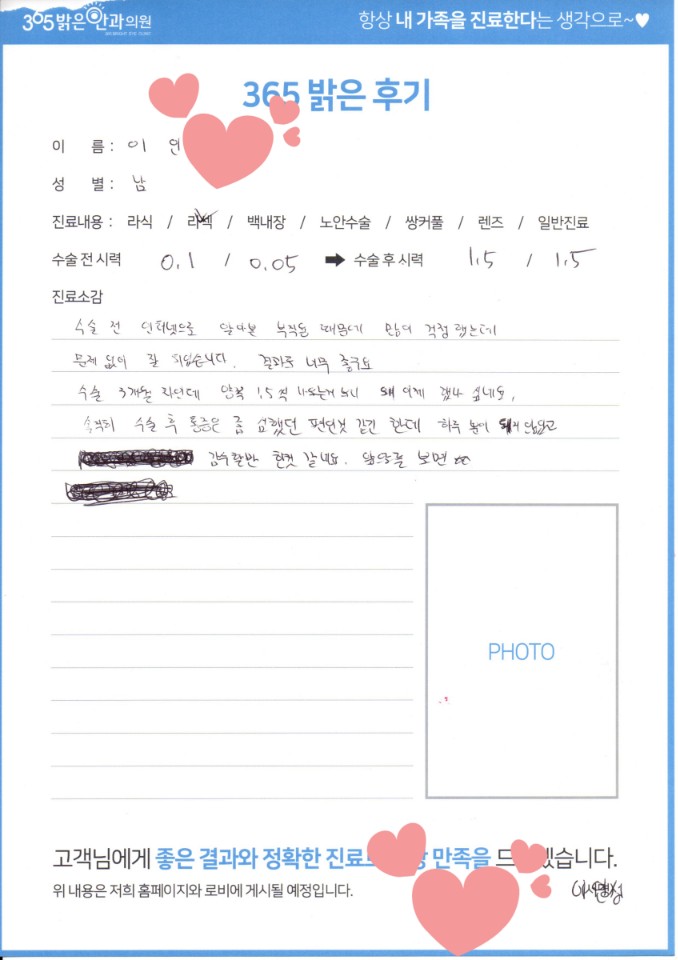 365 밝은안과의원
항상 내 가족을 진료한다는 생각으로~♥
365 밝은 후기
이 름 : 이 인
성 별 : 남
진료내용 : 라식 / 라섹 / 백내장 / 노안수술 / 쌍커풀 / 렌즈 / 일반진료
수술 전 시력 0.1 / 0.05 ➡ 수술 후 시력 1.5 / 1.5
진료소감
수술 전 인터넷으로 알아본 부작용 때문에 많이 걱정했는데
문제 없이 잘 되었습니다. 결과도 너무 좋구요
수술 3개월 차인데 양쪽 1.5씩 나오는거 보니 왜 이제 했나 싶네요.
솔직히 수술 후 통증은 좀 심했던 편인것 같긴 한데 하루 뿐이
감수할만 한것 같네요. 보면
PHOTO
고객님에게 좋은 결과와 정확한 진료 만족을 드 겠습니다.
위 내용은 저희 홈페이지와 로비에 게시될 예정입니다.